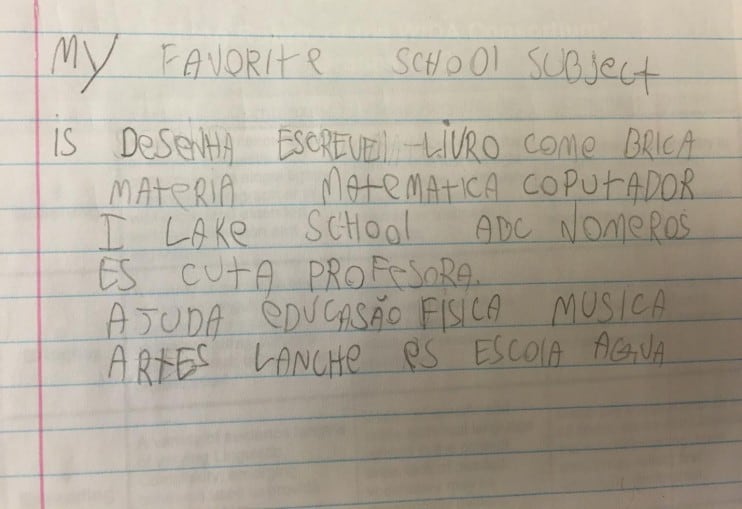 My FAVORITE SCHOOl SUBject
is DeSeNHA ESCREVE LIVRO come BRICA
MATERIA MATEMATICA COPUTADOR
I LAKE SCHOOl ABC NOMEROS
ES CUTA PROFESORA.
AJUDA eDUCASÃO FISICA MUSICA
ARTES LANCHe eS ESCOlA AGUA